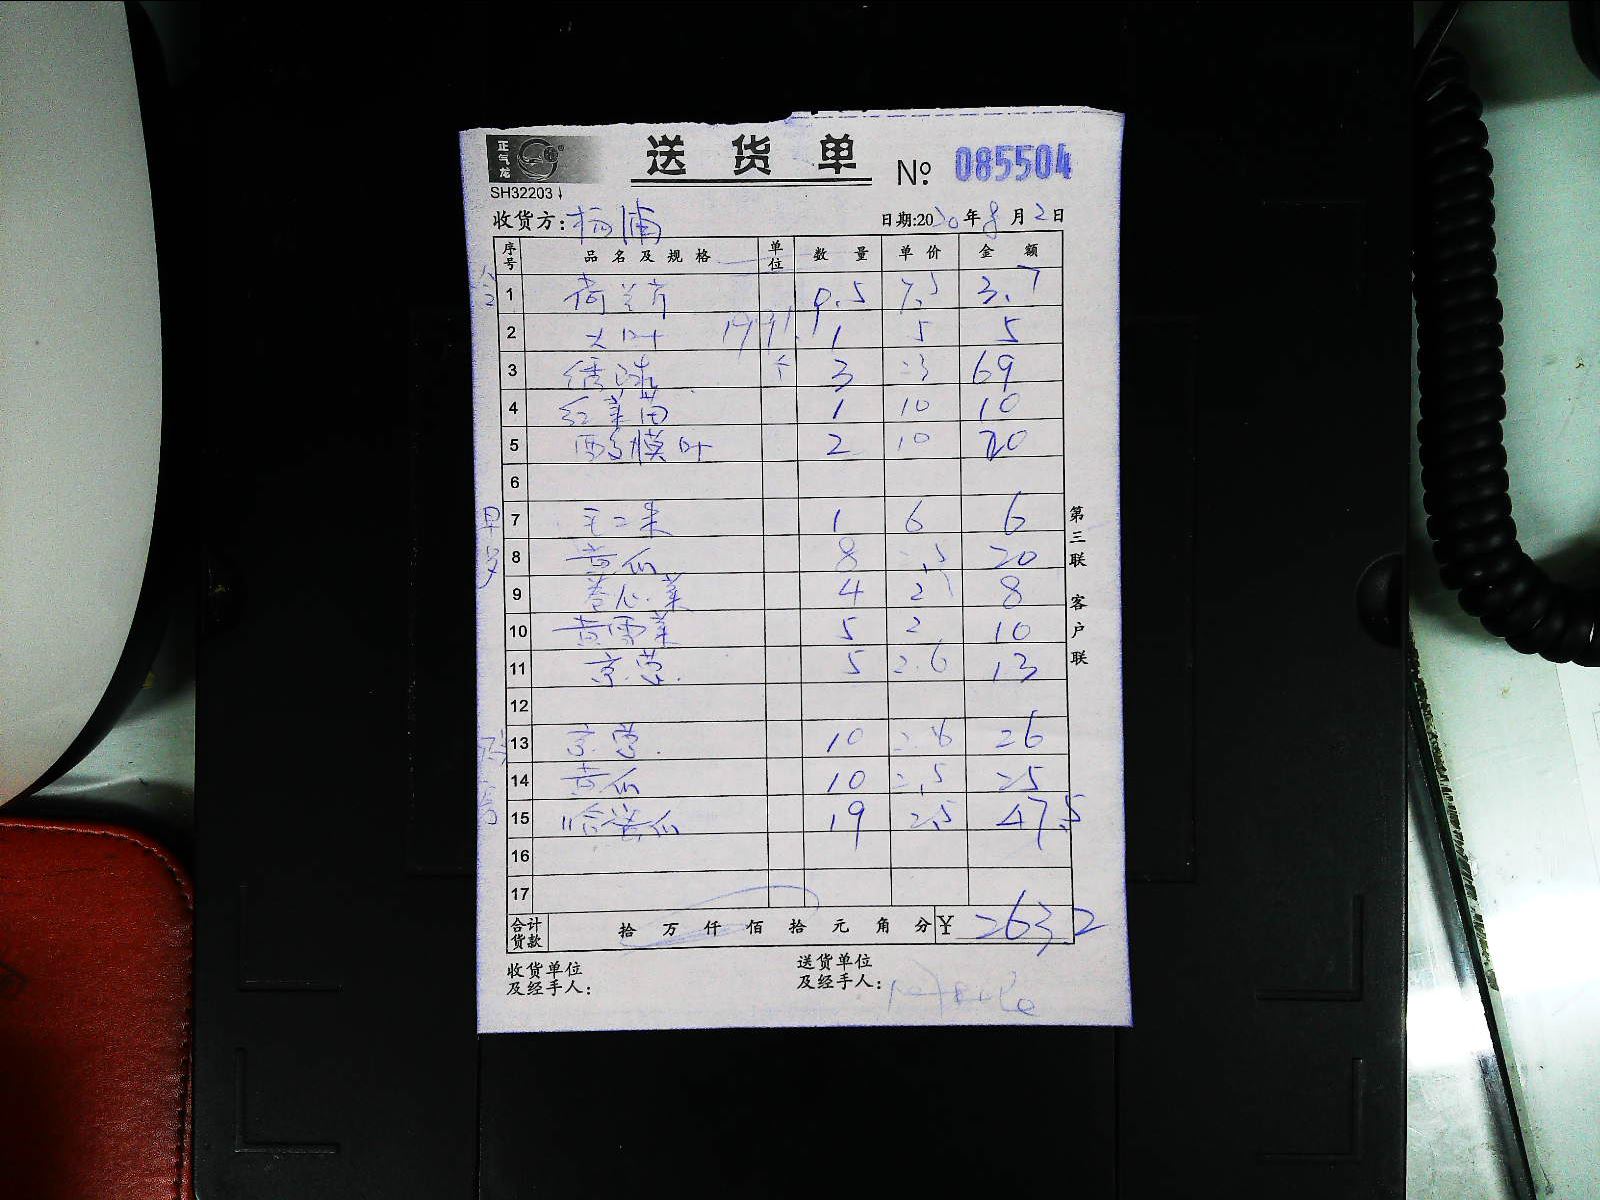 正气龙
送货单
№ 085504
SH32203
收货方: 杨浦
日期:2020年8月2日
序号 品名及规格 单位 数量 单价 金额
1 荷兰芹 0.5 7.5 3.7
2 大叶 1 5 5
3 绣球 个 3 23 69
4 红菜苗 1 10 10
5 2 10 20
6
7 毛二 1 6 6
8 黄瓜 8 2.5 20
9 卷心菜 4 2 8
10 5 2 10
11 京葱 5 2.6 13
12
13 京葱 10 2.6 26
14 黄瓜 10 2.5 25
15 哈密瓜 19 2.5 47.5
16
17
合计货款 拾 万 仟 佰 拾 元 角 分 ¥ 263.2
收货单位及经手人:
送货单位及经手人:
第三联 客户联